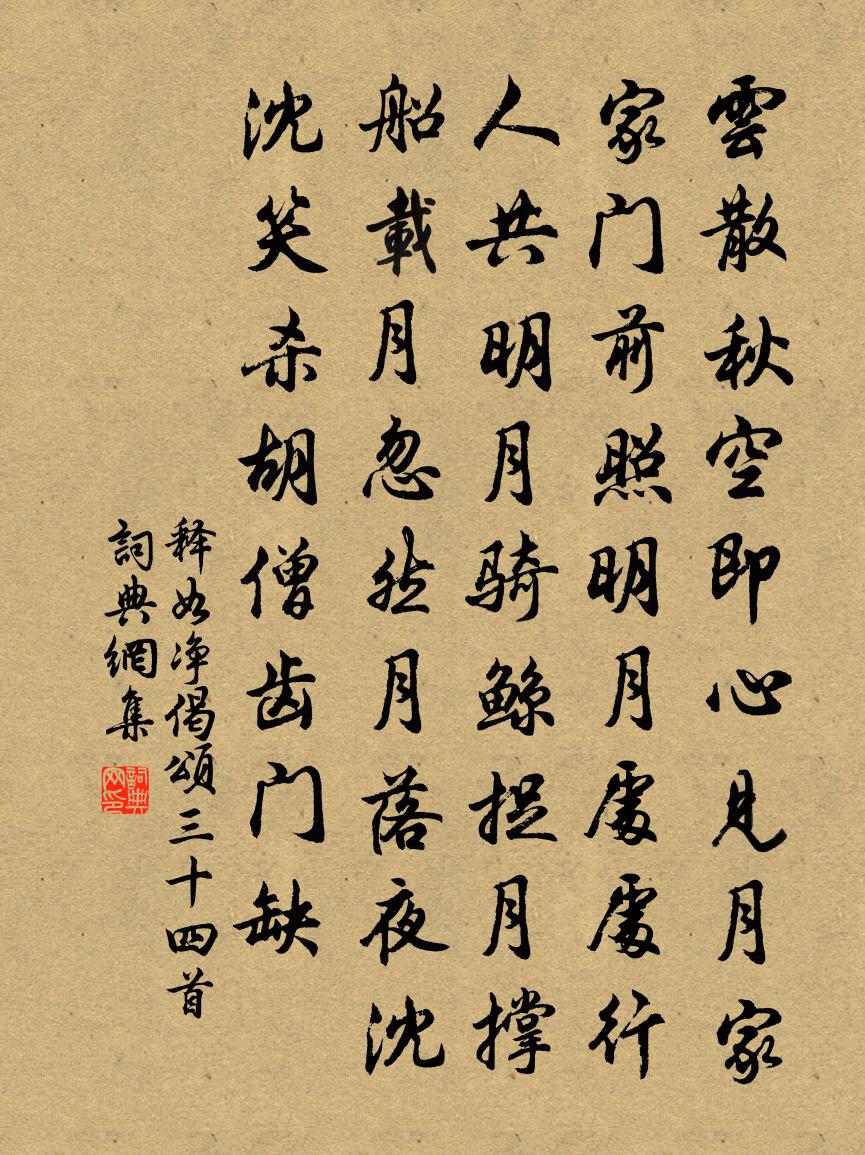 雲散秋空即心見月家
家門前照明月處處行
人共明月骑鲸捉月撑
船載月忽然月落夜沈
沈笑杀胡僧齿门缺
释如净偈頌三十四首
詞典網集
詞典网印